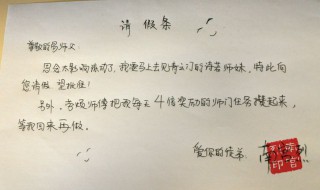 请假条
尊敬的易师父:
思念太影响練功了,我要马上去见青云门的诗茗师妹,特此向
您请假,望批准!
另外,李师傅把我每天4倍奖励的师门任务攒起来,
等我回来再做。
爱你的徒弟